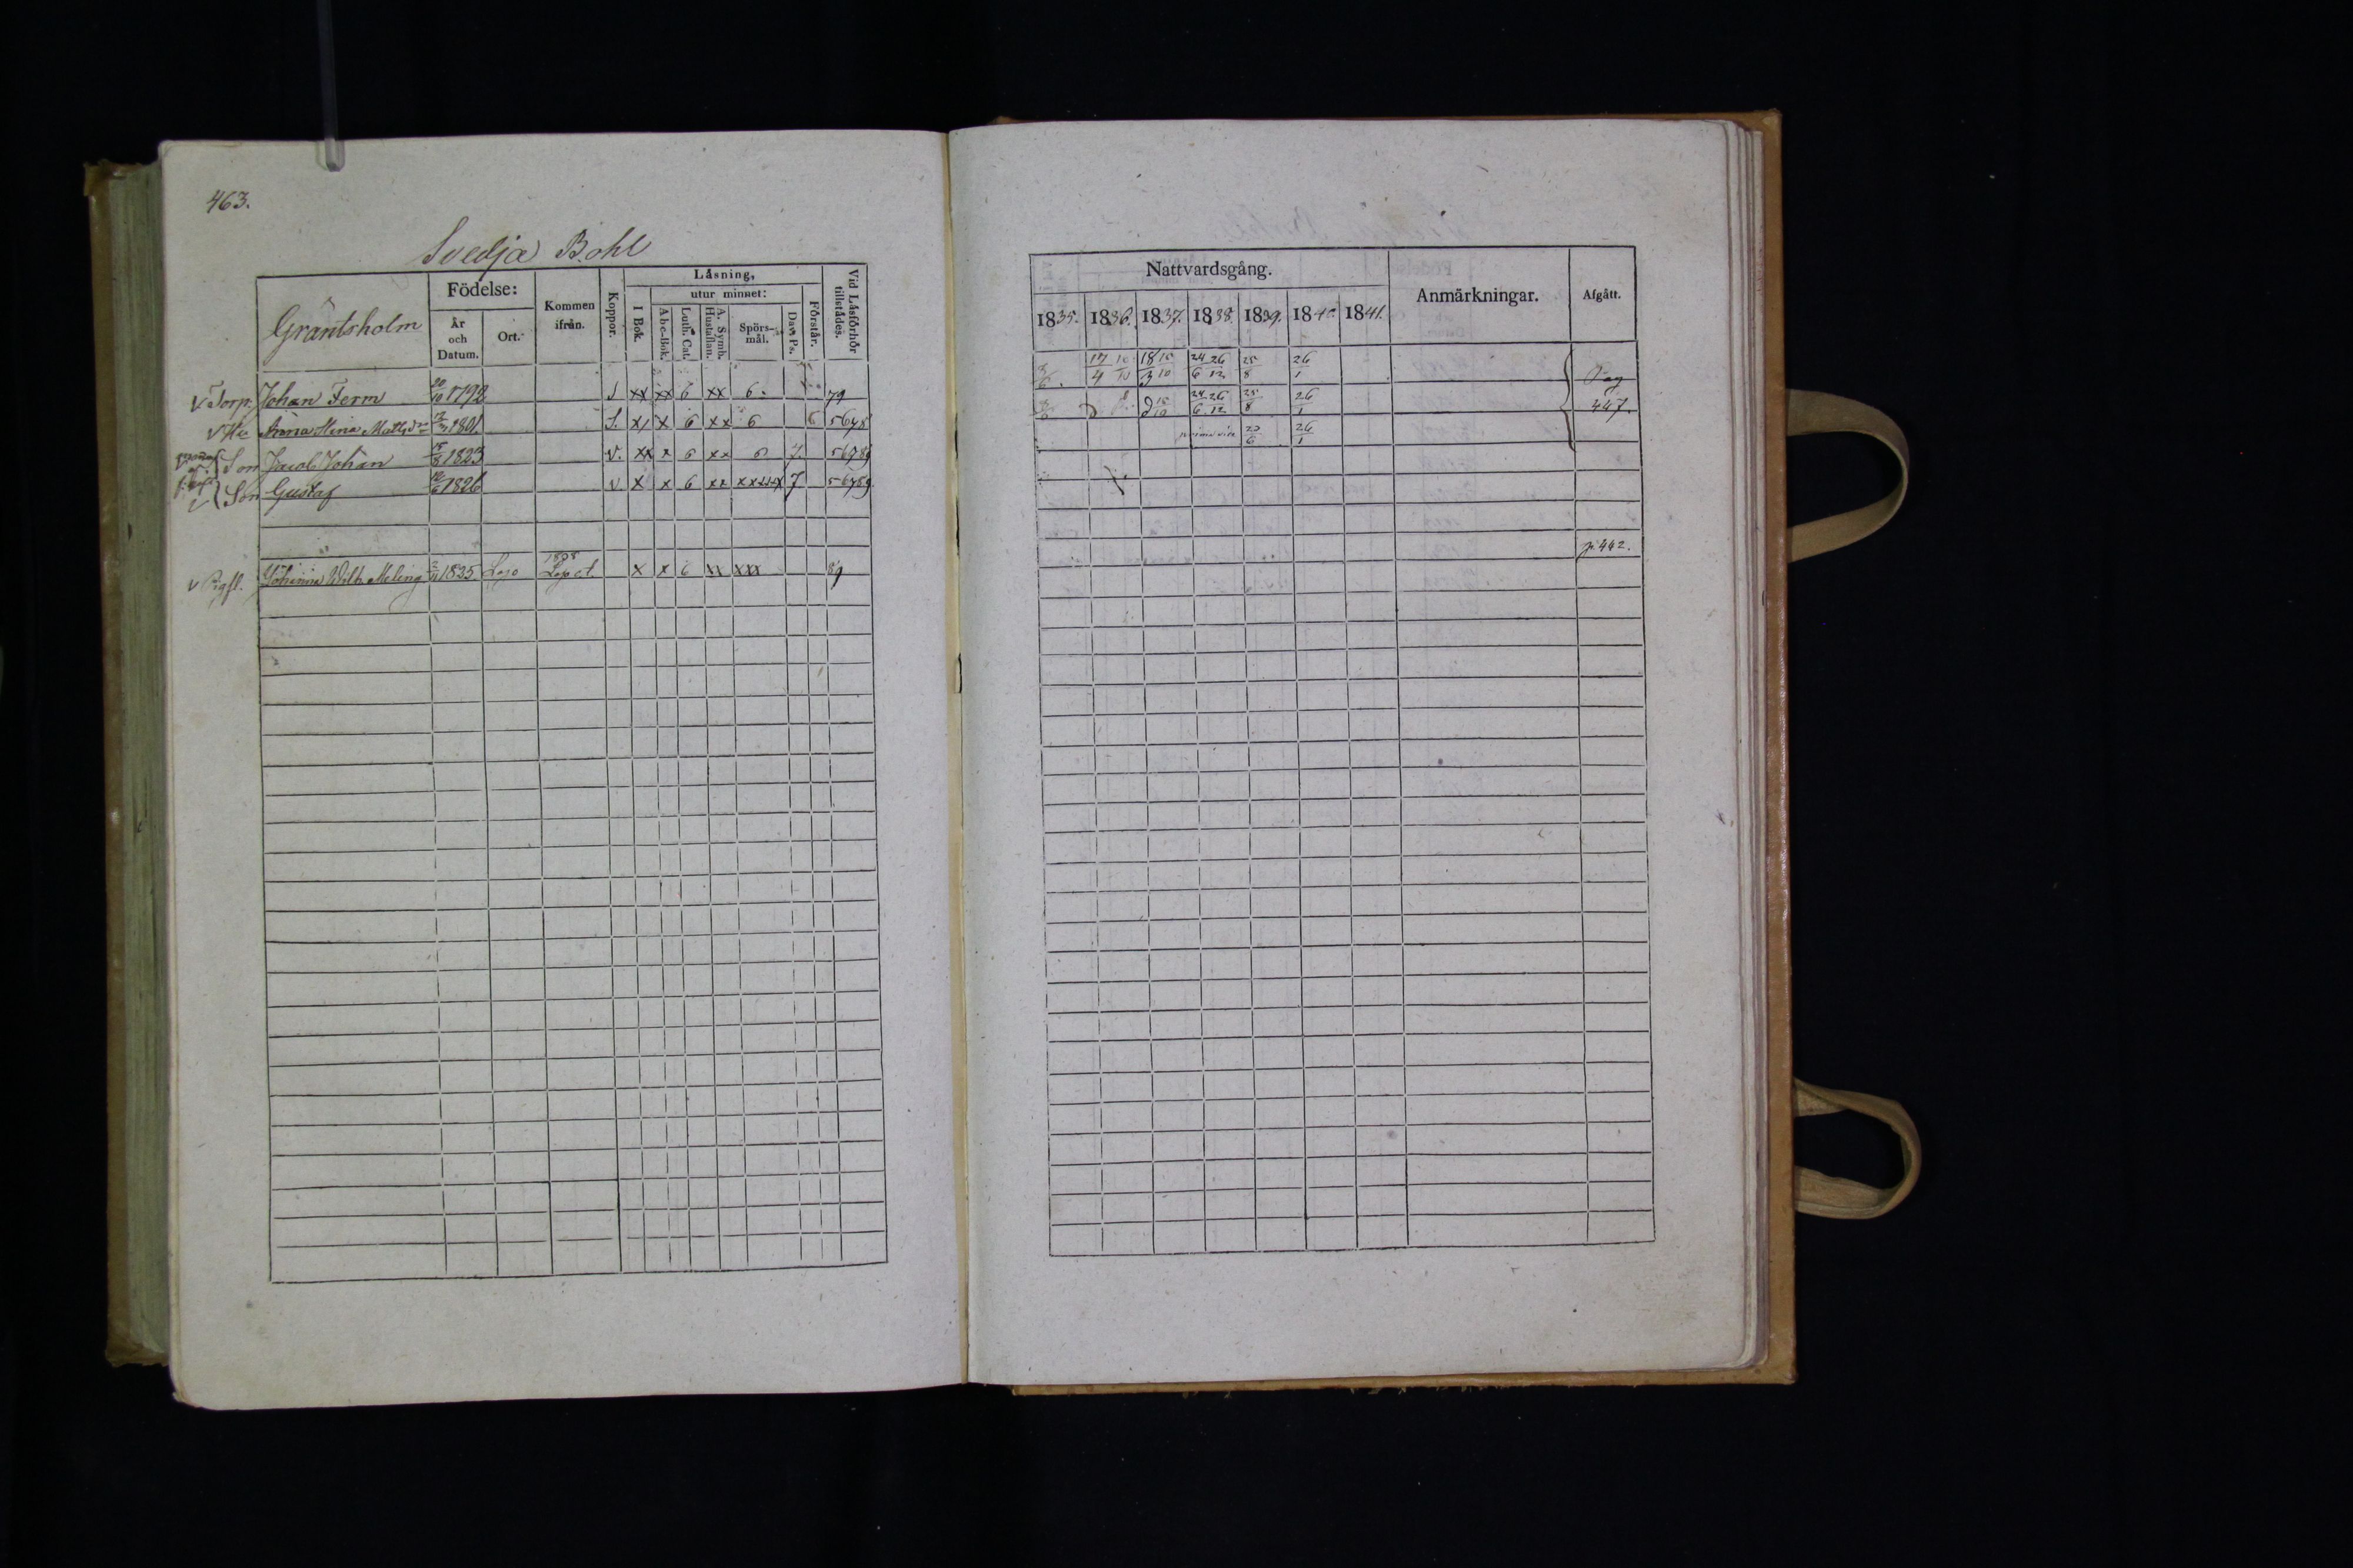 463.
Svedja Bohl
Gräntsholm
Födelse:
År och Datum.
Ort.
Kommen ifrån.
Koppor.
Läsning,
I Bok.
utur minnet:
Abc-Bok.
Luth. Cat.
A. Symb. Hustaflan.
Spörs-mål.
Dav. Ps.
Förstår.
Vid Läsförhör tillstådes.
v Torp. Johan Ferm 20/10 1792 S xx xx 6 xx 6. 79
v Hu Anna Stina Matts dr 1801 S. x x 6 xx 6 6 5678
Son Jacob Johan 15/8 1823 v. xx x 6 xx 6 7. 56789
Son Gustaf 1826 v x x 6 xx 7 56789
v Johanna Wilh. Meling 1835 Lojo 1838 Lojo at. x x 6 xx xxx 89
Nattvardsgång.
1835. 1836. 1837. 1838. 1839. 1840. 1841.
Anmärkningar.
Afgått.
17/4 10/10 18/3 15/10 24/6 26/12 25/8 26/1 Pag
15/10 24/6 26/12 25/8 26/1 447.
prima vice 20/6 26/1
p. 442.